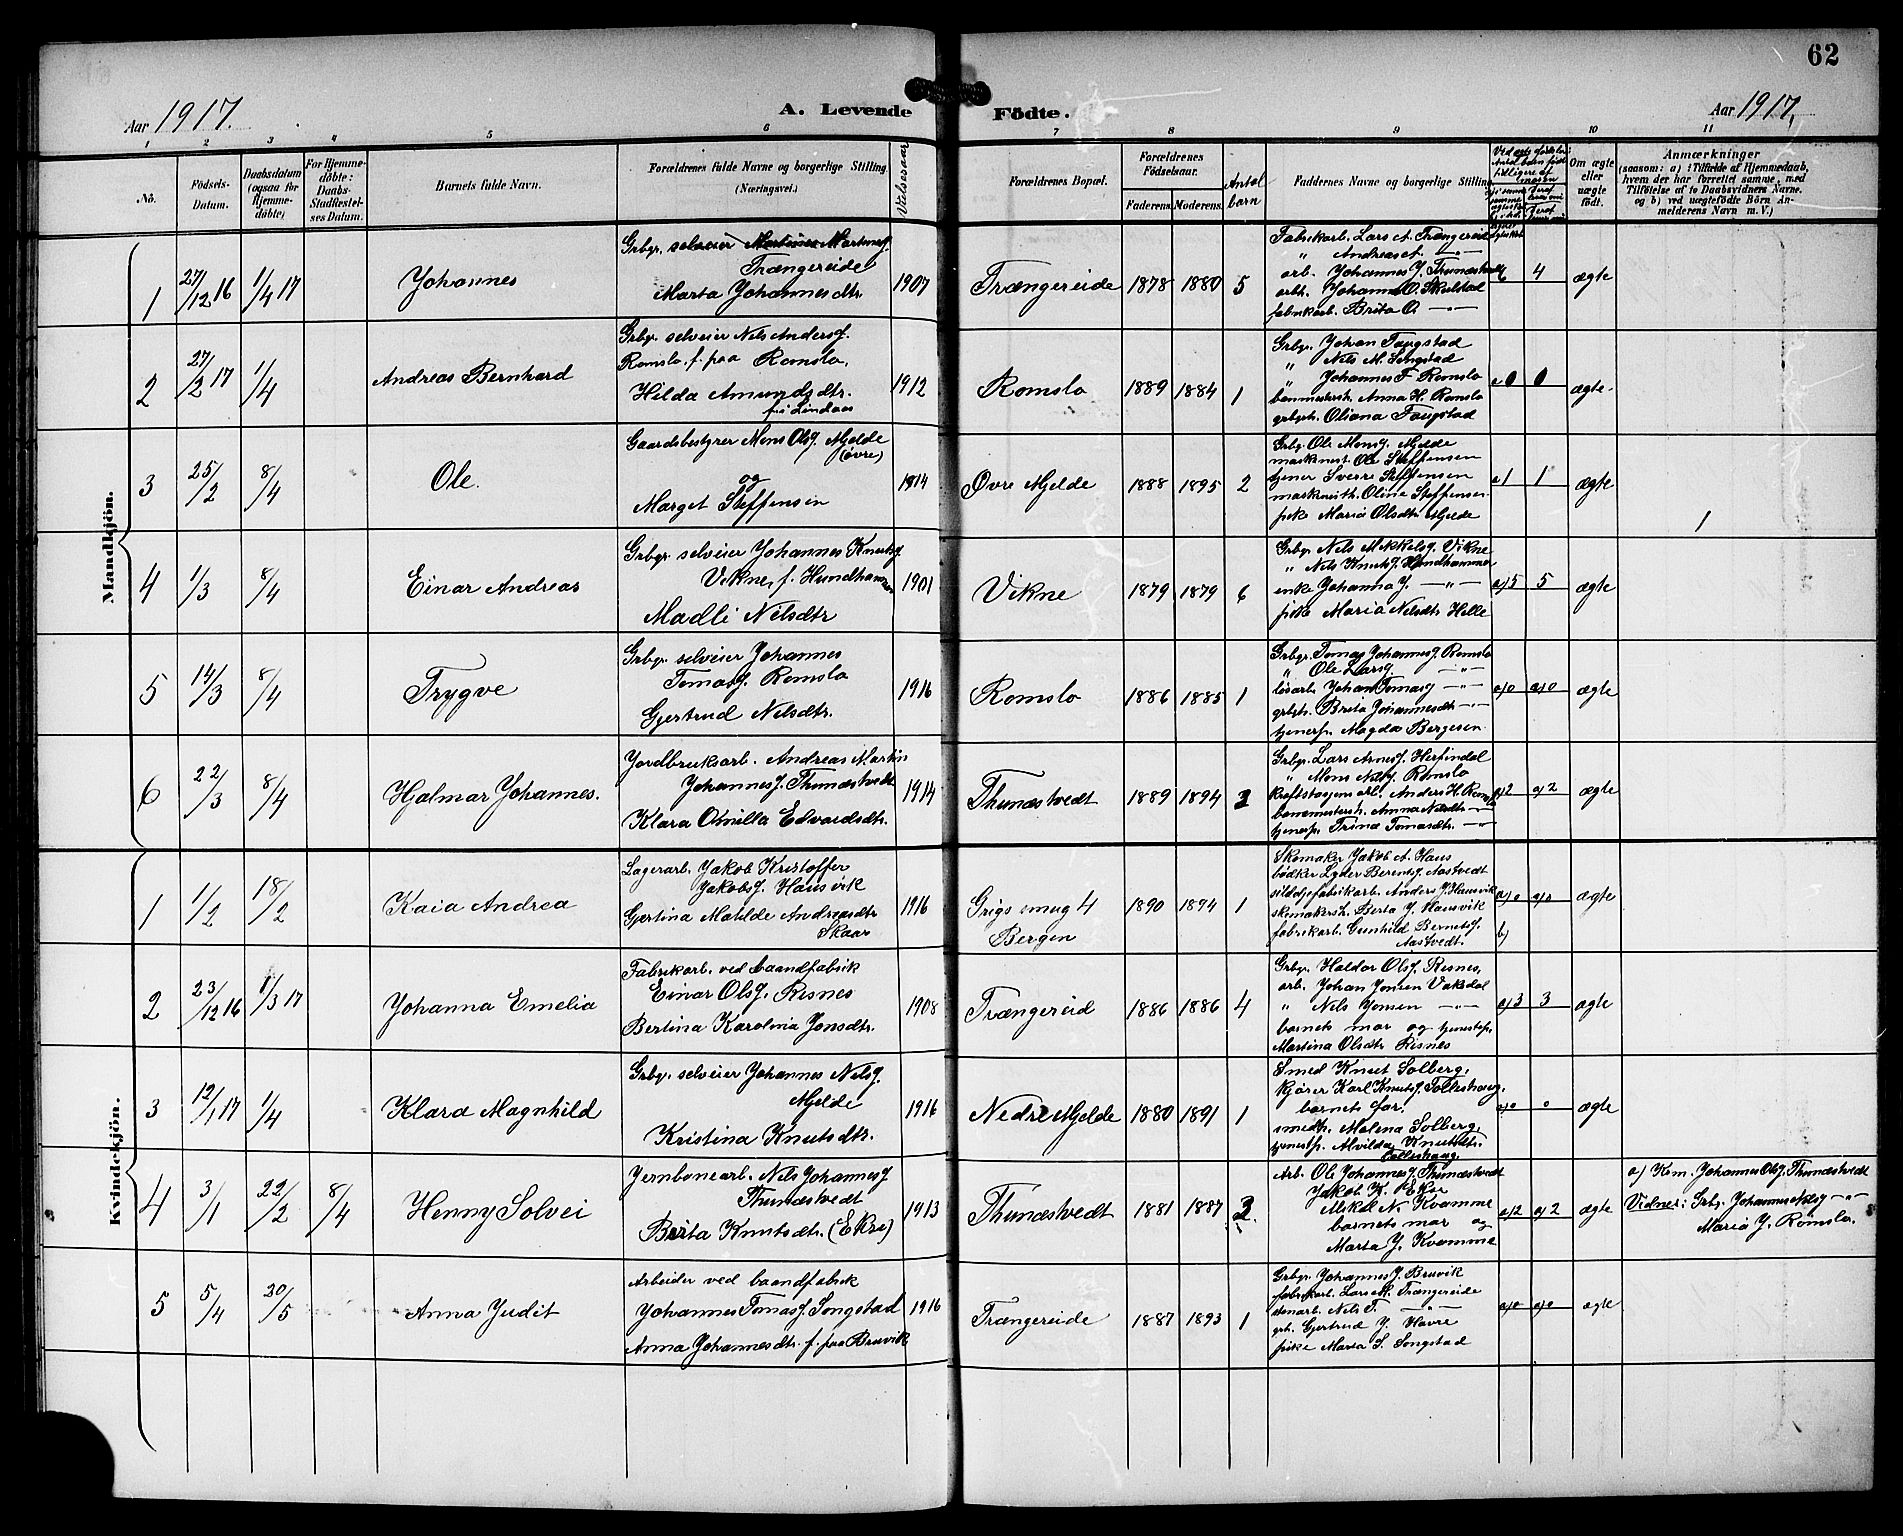 62
Aar 1917.
A. Levende Födte.
Aar 1917.
1 2 3 4 5 6 7 8 9 10 11
No.
Födsels-Datum.
Daabsdatum (ogsaa for Hjemmedöbte)
For Hjemmedöbte: Daabs-Stadfæstelses Datum.
Barnets fulde Navn.
Forældrenes fulde Navne og borgerlige Stilling (Næringsvei.)
Vielsesaar
Forældrenes Bopæl.
Forældrenes Födselsaar.
Faderens. Moderens.
Antal barn
Faddernes Navne og borgerlige Stilling
Om ægte eller uægte födt.
Anmærkninger
(saasom: a) i Tilfælde af Hjemmedaab,
hvem der har forrettet samme, med
Tilföielse af to Daabsvidners Navne.
og b) ved uægtefödte Börn An-
melderens Navn m. V.)
Mandkjön.
1 27/12 16 1/4 17 Johannes
Grbgr. selveier Martines Martinesj.
Trængereide
Marta Johannesdtr
1907 Trængereide 1878 1880 5
Fabrikarb. Lars A. Trængereide
" Andreas A. —"—
arb. Johannes J. Thunæstvedt
arbh. Johanna O. Skulstad
fabrikarb. Brita O. —"—
4 ægte
2 27/2 17 1/4 Andreas Bernhard
Grbgr. selveier Nils Andersj.
Romslo f. paa Romslo,
Hilda Amundsdtr.
fri Lindaas
1912 Romslo 1889 1884 1
Grbgr. Johan Faugstad
" Nils M. Songstad
" Johannes F. Romslo
banmesterh. Anna H. Romslo
grbgrh. Oliana Faugstad
a0 0 ægte.
3 25/2 8/4 Ole.
Gaardsbestyrer Mons Olsj. Mjelde
(øvre)
og
Marget Steffensen
1914 Øvre Mjelde 1888 1895 2
Grbgr. Ole Monsj. Mjelde
maskinist. Ole Steffensen
tjener Sverre Steffensen
maskinisth. Oline Steffensen
pike Maria Olsdtr Mjelde
a1 1 ægte
1
4 1/3 8/4 Einar Andreas
Grbgr. selveier Johannes Knutsj.
Vikne, f. Hundhammer
Madli Nilsdtr
1901 Vikne 1879 1879 6
Grbgr. Nils Mikkelsj. Vikne
" Nils Knutsj. Hundhammer
enke Johanna J. —"—
pike Maria Nilsdtr Helle
a)5 5 ægte
5 14/3 8/4 Trygve
Grbgr. selveier Johannes
Tomasj. Romslo
Gjertrud Nilsdtr.
1916 Romslo 1886 1885 1
Grbgr. Tomas Johannesj. Romslo
" Ole Larsj. —"—
løsarb. Johan Tomasj —"—
grbgrh. Brita Johannesdtr —"—
tjenerp. Magda Bergesen
a)0 a)0 ægte
6 22/3 8/4 Hjalmar Johannes.
Jordbruksarb. Andreas Martin
Johannesj. Thunæstvedt
Klara Otmilla Edvardsdtr.
1914 Thunæstvedt 1889 1894 3
Grbgr. Lars Arnesj. Herfindal
" Mons Nilsj. Romslo
kraftstasjons arb. Anders H. Romslo
banemesterh. Anna Nilsdtr —"—
tjenerp. Trina Tomasdtr. —"—
a)2 a)2 ægte
Kvindekjön.
1 1/2 18/2 Kaia Andrea
Lagerarb. Jakob Kristoffer
Jakobsj. Hausvik
Gjertina Matilde Andreasdtr
Skaar
1916 Grigs smug 4
Bergen
1890 1894 1
Skomaker Jakob A. Haus
bødker Lyder Berentsj. Aastvedt
sildoljefabrikarb. Anders J. Hausvik
skomakersh. Berta J. Hausvik
fabrikarb. Gunhild Berntsj.
Aastvedt.
a)0 a)0 ægte
b)
2 23/12 16 1/3 17 Johanna Emelia
Fabrikarb. ved baandfabrik
Einar Olsj. Risnes
Bertina Karolina Jonsdtr.
1908 Trængereid 1886 1886 4
Grbgr. Haldor Olsj. Risnes,
arb. Johan Jonsen Vaksdal
" Nils Jonsen —"—
barnets mor og tjenestep.
Martina Olsdtr Risnes
a)3 3 ægte
3 12/1 17 1/4 Klara Magnhild
Grbgr. selveier Johannes Nilsj.
Mjelde
Kristina Knutsdtr.
1916 Nedre Mjelde 1880 1891 1
Smed Knut Solberg,
kjører Karl Knutsj. Tolleshaug
barnets far.
smedh. Malena Solberg,
tjenestp. Alvilda Knutsdtr.
Tolleshaug
a)0 0 ægte
4 3/1 22/2 8/4 Henny Solvei
Jernbanearb. Nils Johannesj
Thunæstvedt
Berta Knutsdtr. (Ekre)
1913 Thunæstvedt 1881 1887 3.
Arb. Ole Johannesj. Thunæstvedt
Jakob K. Ekre
Mikal N. Kvamme
barnets mor og
Marta J. Kvamme
a)2 a)2 ægte
a) Km. Johannes Olsj. Thunæstvedt
Vidner: Grb. Johannes Nilsj —"—
Maria J. Romslo.
5 5/4 20/5 Anna Judit
Arbeider ved baandfabrik
Johannes Tomasj. Songstad
Anna Johannesdtr. f. paa Bruvik
1916 Trængereide 1887 1893 1
Grbgr. Johannes J. Bruvik
fabrikarb. Lars M. Trængereide
Nils T. —"—
grb. Gjertrud J. Havre
pike Marta S. Songstad
a)0 a)0 ægte